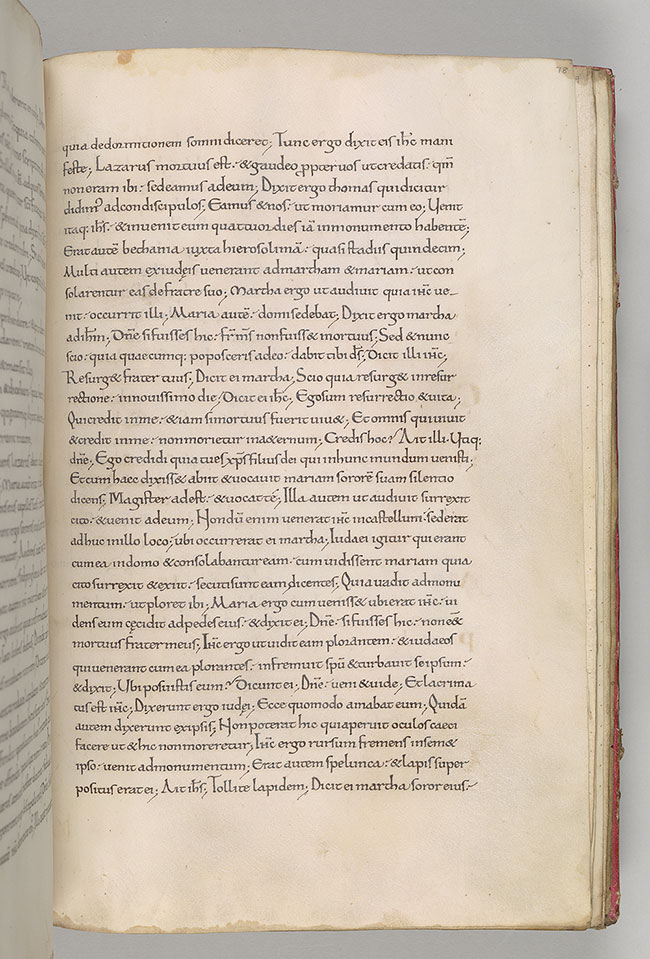 78
quia dedormitionem somni diceret; Tunc ergo dixit eis ihc mani
feste; Lazarus mortuus est. &gaudeo ppter uos utcredatis. qm̄
non eram ibi. sedeamus adeum; Dixit ergo thomas quidicitur
didim' adcondiscipulos; Eamus &nos. ut moriamur cum eo; Uenit
itaq: ihs. &inuenit eum quattuor dies iā inmonumento habentē;
Erat autē bethania iuxta hierosolimā. quasi stadiis quindecim;
Multi autem exiudęis uenerant admartham &mariam. utcon
solarentur eas defratre suo; Martha ergo utaudiuit quia ihc ue
nit. occurrit illi; Maria autē. domi sedebat; Dixit ergo martha
adihm̄; Dn̄e sifuisses hic. fr̄ m̄s nonfuiss& mortuus; Sed &nunc
scio. quia quaecumq; poposceris adeo. dabit tibi ds̄; Dicit illi ihc;
Resurg& frater tuus; Dicit ei martha; Scio quia resurg& inresur
rectione. innouissimo die; Dicit ei ihc; Egosum resurrectio &uita;
Quicredit inme. &iam simortuus fuerit uiu&; Et omnis qui uiuit
&credit inme. nonmorietur ina&ernum; Credis hoc? Ait illi. Utiq:
dn̄e; Ego credidi quia tu es xp̄s filius dei qui inhunc mundum uenisti;
Et cum haec dixiss& abiit &uocauit mariam sororē suam silentio
dicens; Magister adest. &uocat té; Illa autem ut audiuit surrexit
cito. &uenit adeum; Nondū enim uenerat ihc incastellum. sederat
adhuc inillo loco; ubi occurrerat ei martha; Iudaei igitur qui erant
cum ea indomo &consolabantur eam. cum uidissent mariam quia
cito surrexit &exiit. secutisunt eam dicentes; Quia uadit admonu
mentum. utploret ibi; Maria ergo cum ueniss& ubi erat ihc. ui
dens eum cęcidit adpedes eius. &dixit ei; Dn̄e. si fuisses hic. non ēē&
mortuus frater meus; Ihc ergo ut uidit eam plorantem. &iudaeos
qui uenerant cum ea plorantes. infremuit spū &turbauit seipsum.
&dixit; Ubi posuistis eum? Dicunt ei; Dn̄e. ueni &uide; Et lacrima
tus est ihc; Dixerunt ergo iudęi; Ecce quomodo amabat eum; Quidā
autem dixerunt exipsis; Non poterat hic qui aperuit oculos caeci
facere ut &hic nonmoreretur; Ihc ergo rursum fremens insem&
ipso. uenit admonumentum; Erat autem spelunca. &lapis super
positus erat ei; Ait ihs; Tollite lapidem; Dicit ei martha soror eius.